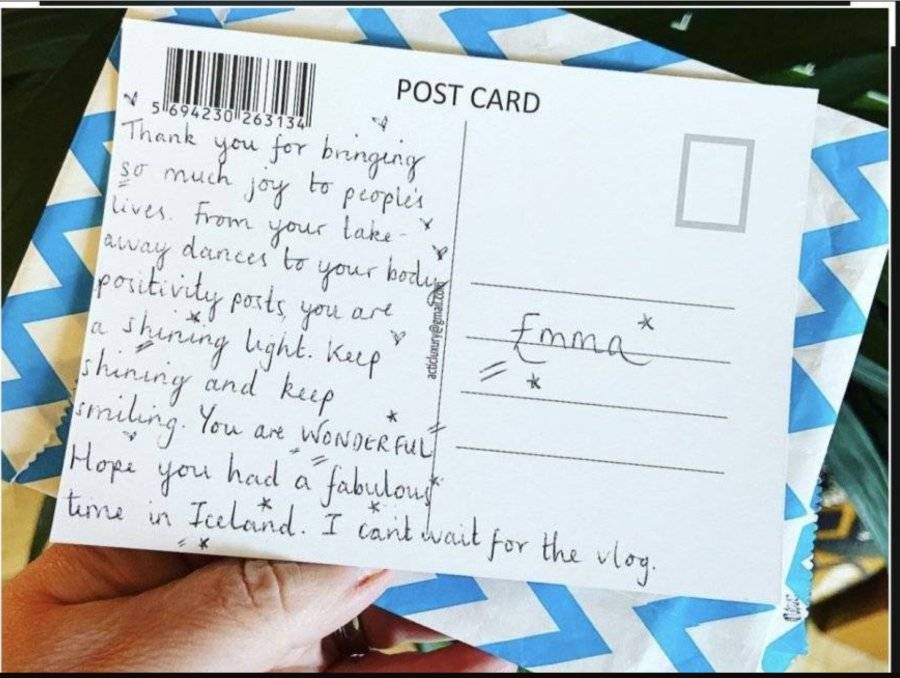 POST CARD
5 694230 263134
Thank you for bringing
so much joy to people's
lives. From your take-
away dances to your body
positivity posts, you are
a shining light. Keep
shining and keep
smiling. You are WONDERFUL
Hope you had a fabulous
time in Iceland. I can't wait for the vlog.
acticluxury@gmail.com
Emma